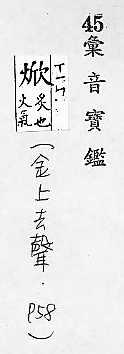 45彙音寶鑑
焮
炙也
火氣
(金上去聲. P58)